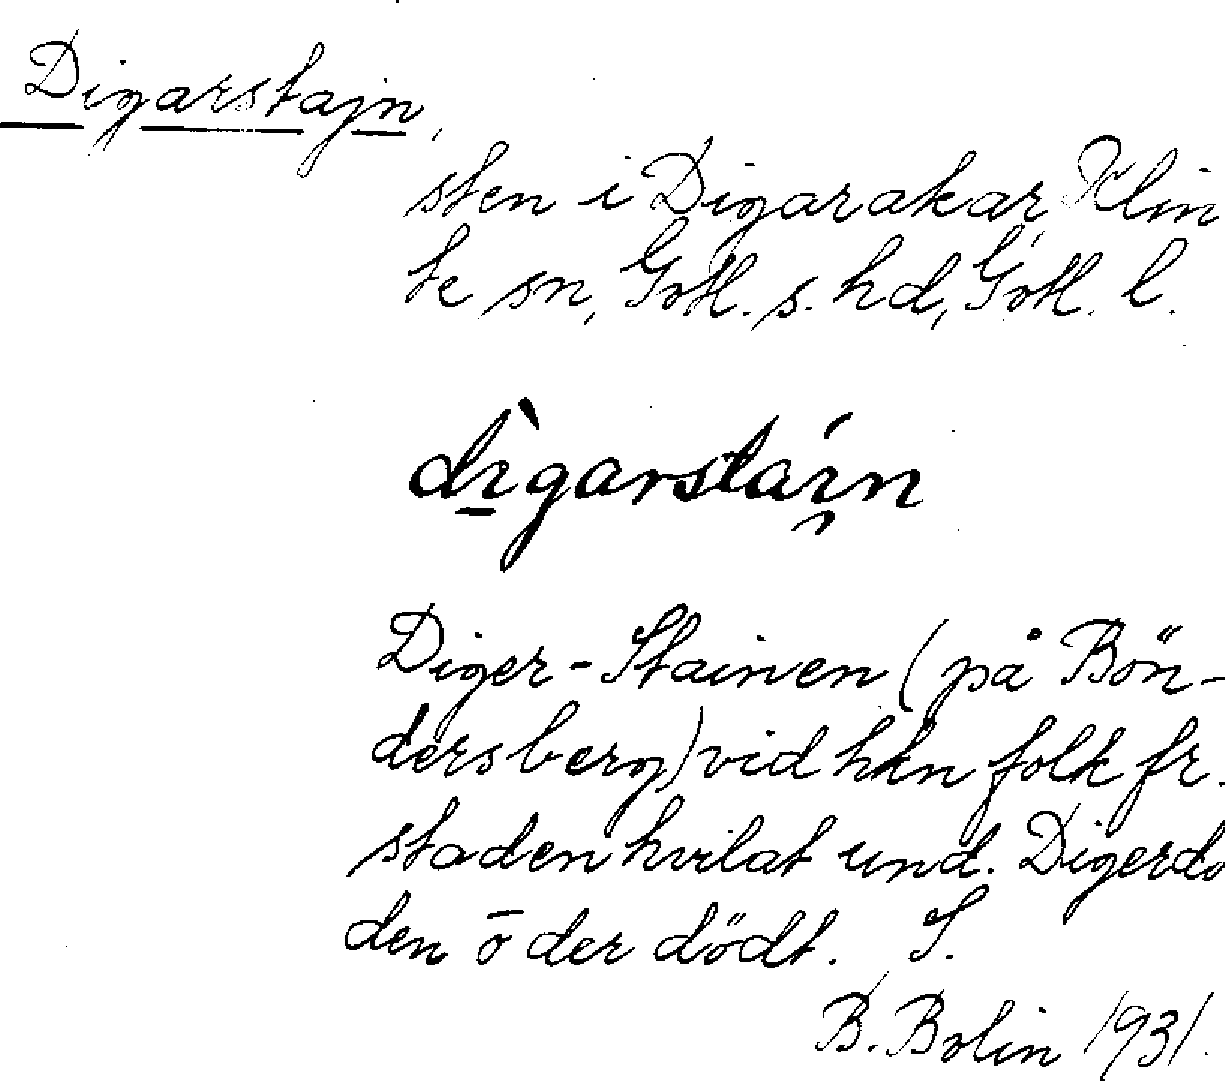 Digarstajn,
sten i Digarakar, Klin
te sn, Gotl. s. hd, Gotl. l.
dìgarstáin
Diger-Stainen (på Bön-
dersberg) vid hkn folk fr.
staden hvilat und. Digerdö
den o der dödt. S.
B. Bolin 1931.